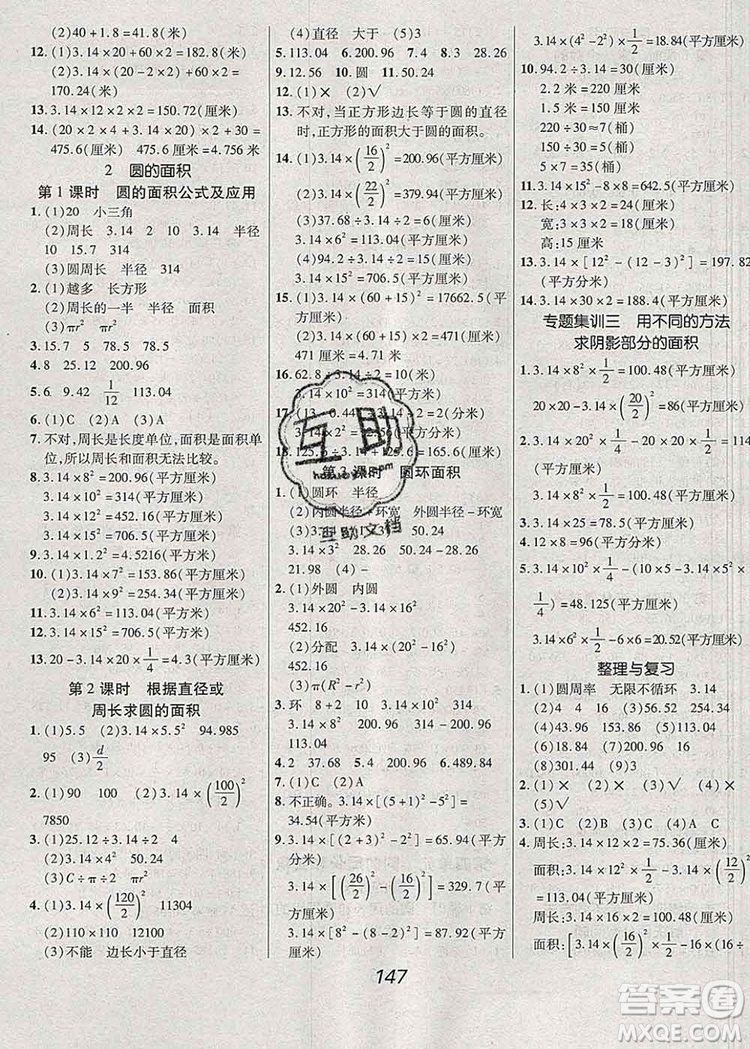 (2)40+1.8=41.8(米)
12.(1)3.14×20+60×2=182.8(米)
(2)3.14×(20-2×2)+60×2=
170.24(米)
13.3.14×12×2=150.72(厘米)
14.(20×2+3.14×20)×2+30=
475.6(厘米) 475.6厘米=4.756米
2 圆的面积
第1课时 圆的面积公式及应用
1.(1)20 小三角
(2)周长 半径 半径 314 半径
10 15.7 314
(3)圆周长 半径 314
2.(1)越多 长方形
(2)周长的一半 半径 面积
(3)πr² πr²
3.15.7 78.5
4.8 25.12 200.96
5.6 9.42 1/12 113.04
6.(1)C (2)A (3)A
7.不对,周长是长度单位,面积是面积单
位,所以周长和面积无法比较。
8.3.14×5²=78.5(平方厘米)
3.14×6²=113.04(平方厘米)
3.14×12²=452.16(平方米)
3.14×15²=706.5(平方厘米)
9.3.14×1.2²=4.5216(平方米)
10.3.14×7²=153.86(平方厘米)
11.3.14×6²=113.04(平方米)
12.3.14×15²=706.5(平方米)
13.20-3.14×20×1/4=4.3(平方厘米)
第2课时 根据直径或
周长求圆的面积
1.(1)5.5 (2)3.14×5.5² 94.985
95 (3)d/2
2.(1)100 50 (2)3.14×(100/2)²
7850
3.(1)25.12÷3.14÷2 4
(2)3.14×4² 50.24
(3)C÷π÷2 π(C÷π÷2)²
4.(1)3.14×(120/2)² 11304
(2)110×110 12100
(3)不能 边长小于直径
(4)直径 大于 (5)3
5.113.04 6.200.96 7.4 8.3 28.26
9.12.56 10.圆 11.50.24
12.(1)× (2)√
13.不对,当正方形边长等于圆的直径
时,正方形的面积大于圆的面积。
14.(1)3.14×(16/2)²=200.96(平方厘米)
(2)3.14×(22/2)²=379.94(平方厘米)
(3)37.68÷3.14÷2=6(厘米)
3.14×6²=113.04(平方厘米)
(4)94.2÷3.14÷2=15(厘米)
3.14×15²=706.5(平方厘米)
15.(1)3.14×(60+15)²=17662.5(平方厘米)
(2)3.14×(60+15)×2=471(厘米)
471厘米=4.71米
16.62.8÷3.14÷2=10(厘米)
3.14×10²=314(平方厘米)
17.(13-0.44)÷3.14÷2=2(米)
3.14×2²=12.56(平方米)
第3课时 圆环面积
1.(1)圆环 半径
(2)内圆半径+环宽 外圆半径-环宽
3.14×3² 28.26 50.24-28.26
21.98 (4)√
2.(1)外圆 内圆
3.14×20²-3.14×16²
452.16
(2)分配 3.14×(20²-16²)
452.16
(3)π(R²-r²)
3.环 8+2 10 3.14×10²-3.14×8²
113.04
4.2 37.68 5.200.96 6.489.84
7.(1)C (2)A
8.不正确。3.14×[(5+1)²-5²]=
34.54(平方厘米)
9.3.14×[(3+2)²-2²]=65.94(平方分米)
3.14×[(26/2)²-(16/2)²]=329.7(平方厘米)
3.14×[8²-(8-2)²]=87.92(平方厘米)
3.14×(4²-2²)×1/2=18.84(平方厘米)
10.94.2÷3.14=30(厘米)
2.2米=220厘米
220÷30≈7(桶)
150÷30=5(桶)
5×7=35(桶)
11.3.14×15²-8×8=642.5(平方厘米)
12.长:4×3×2=24(厘米)
宽:3×3×2=18(厘米)
高:15厘米
13.3.14×[12²-(12-3)²]=197.82
(平方分米)
14.3.14×30×2=188.4(厘米)
专题集训三 用不同的方法
求阴影部分的面积
1.3.14×8²×1/2=100.48(平方厘米)
20×20-3.14×(20/2)²=86(平方厘米)
3.3.14×25=78.5(平方厘米)
4.12×8=96(平方厘米)
整理与复习
1.(1)圆周率 无限不循环 3.14
(2)4 4 16 (3)56.52 254.34
(4)43.96 153.86 (5)9.42
(6)18.84 (7)2 200.96 50.24
(8)301.44 (9)5 28.5
2.(1)× (2)× (3)√ (4)×
(5)√
3.(1)C (2)B (3)B (4)C
互助
互助文档
147
答案圈
MXQE.COM